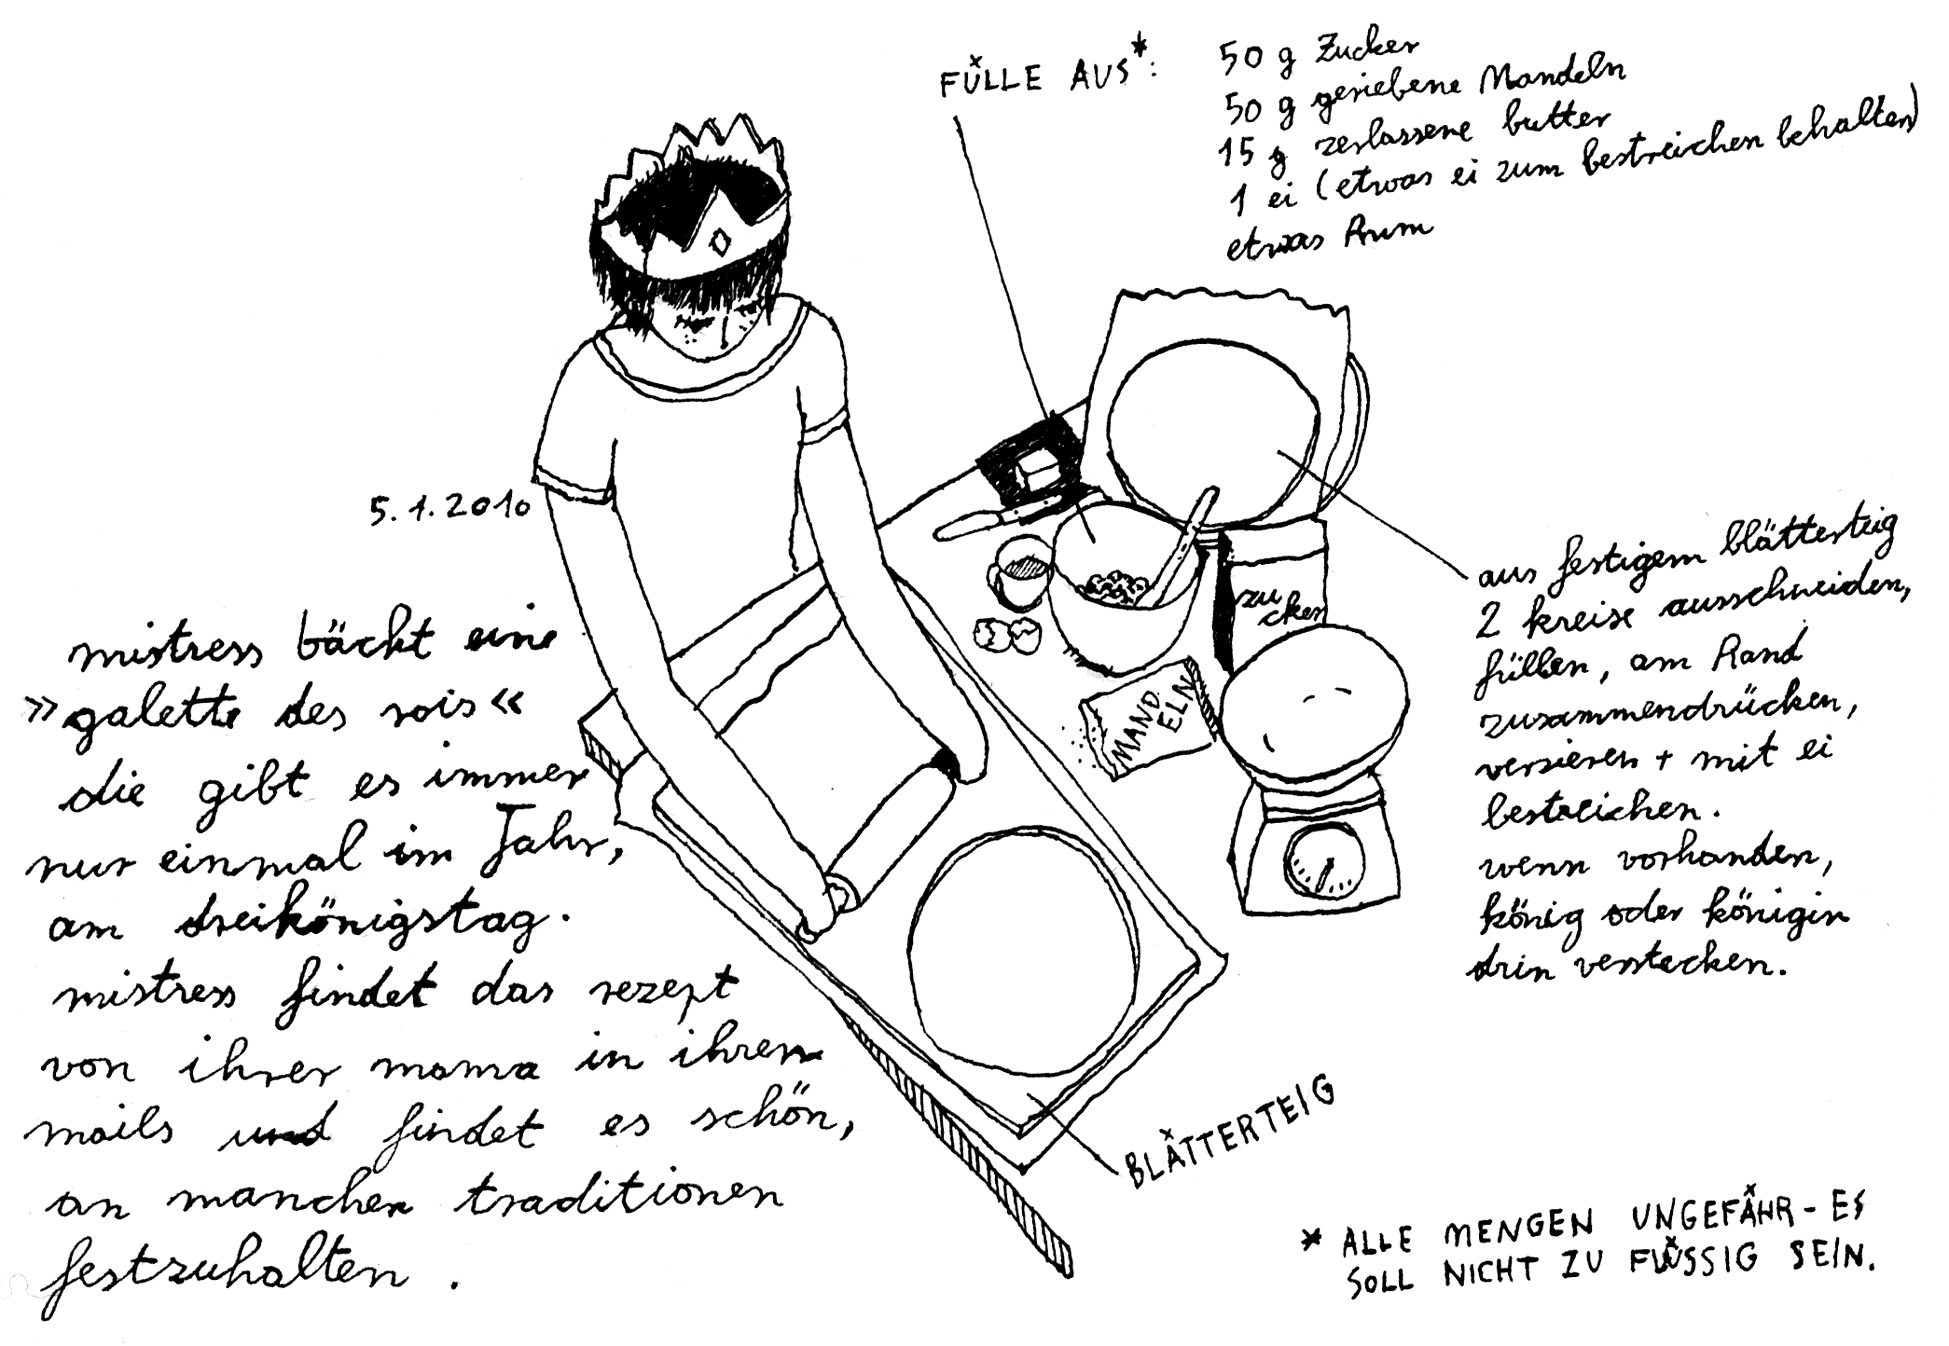 FÜLLE AUS*:
50 g Zucker
50 g geriebene Mandeln
15 g zerlassene butter
1 ei (etwas ei zum bestreichen behalten)
etwas Rum
5.1.2010
mistress bäckt eine
»galette des rois«
die gibt es immer
nur einmal im Jahr,
am dreikönigstag.
mistress findet das rezept
von ihrer mama in ihren
mails und findet es schön,
an manchen traditionen
festzuhalten.
zu
cker
MAND
ELN
aus festigem blätterteig
2 kreise ausschneiden,
füllen, am Rand
zusammendrücken,
verzieren + mit ei
bestreichen.
wenn vorhanden,
könig oder königin
drin verstecken.
BLÄTTERTEIG
* ALLE MENGEN UNGEFÄHR - ES
SOLL NICHT ZU FLÜSSIG SEIN.